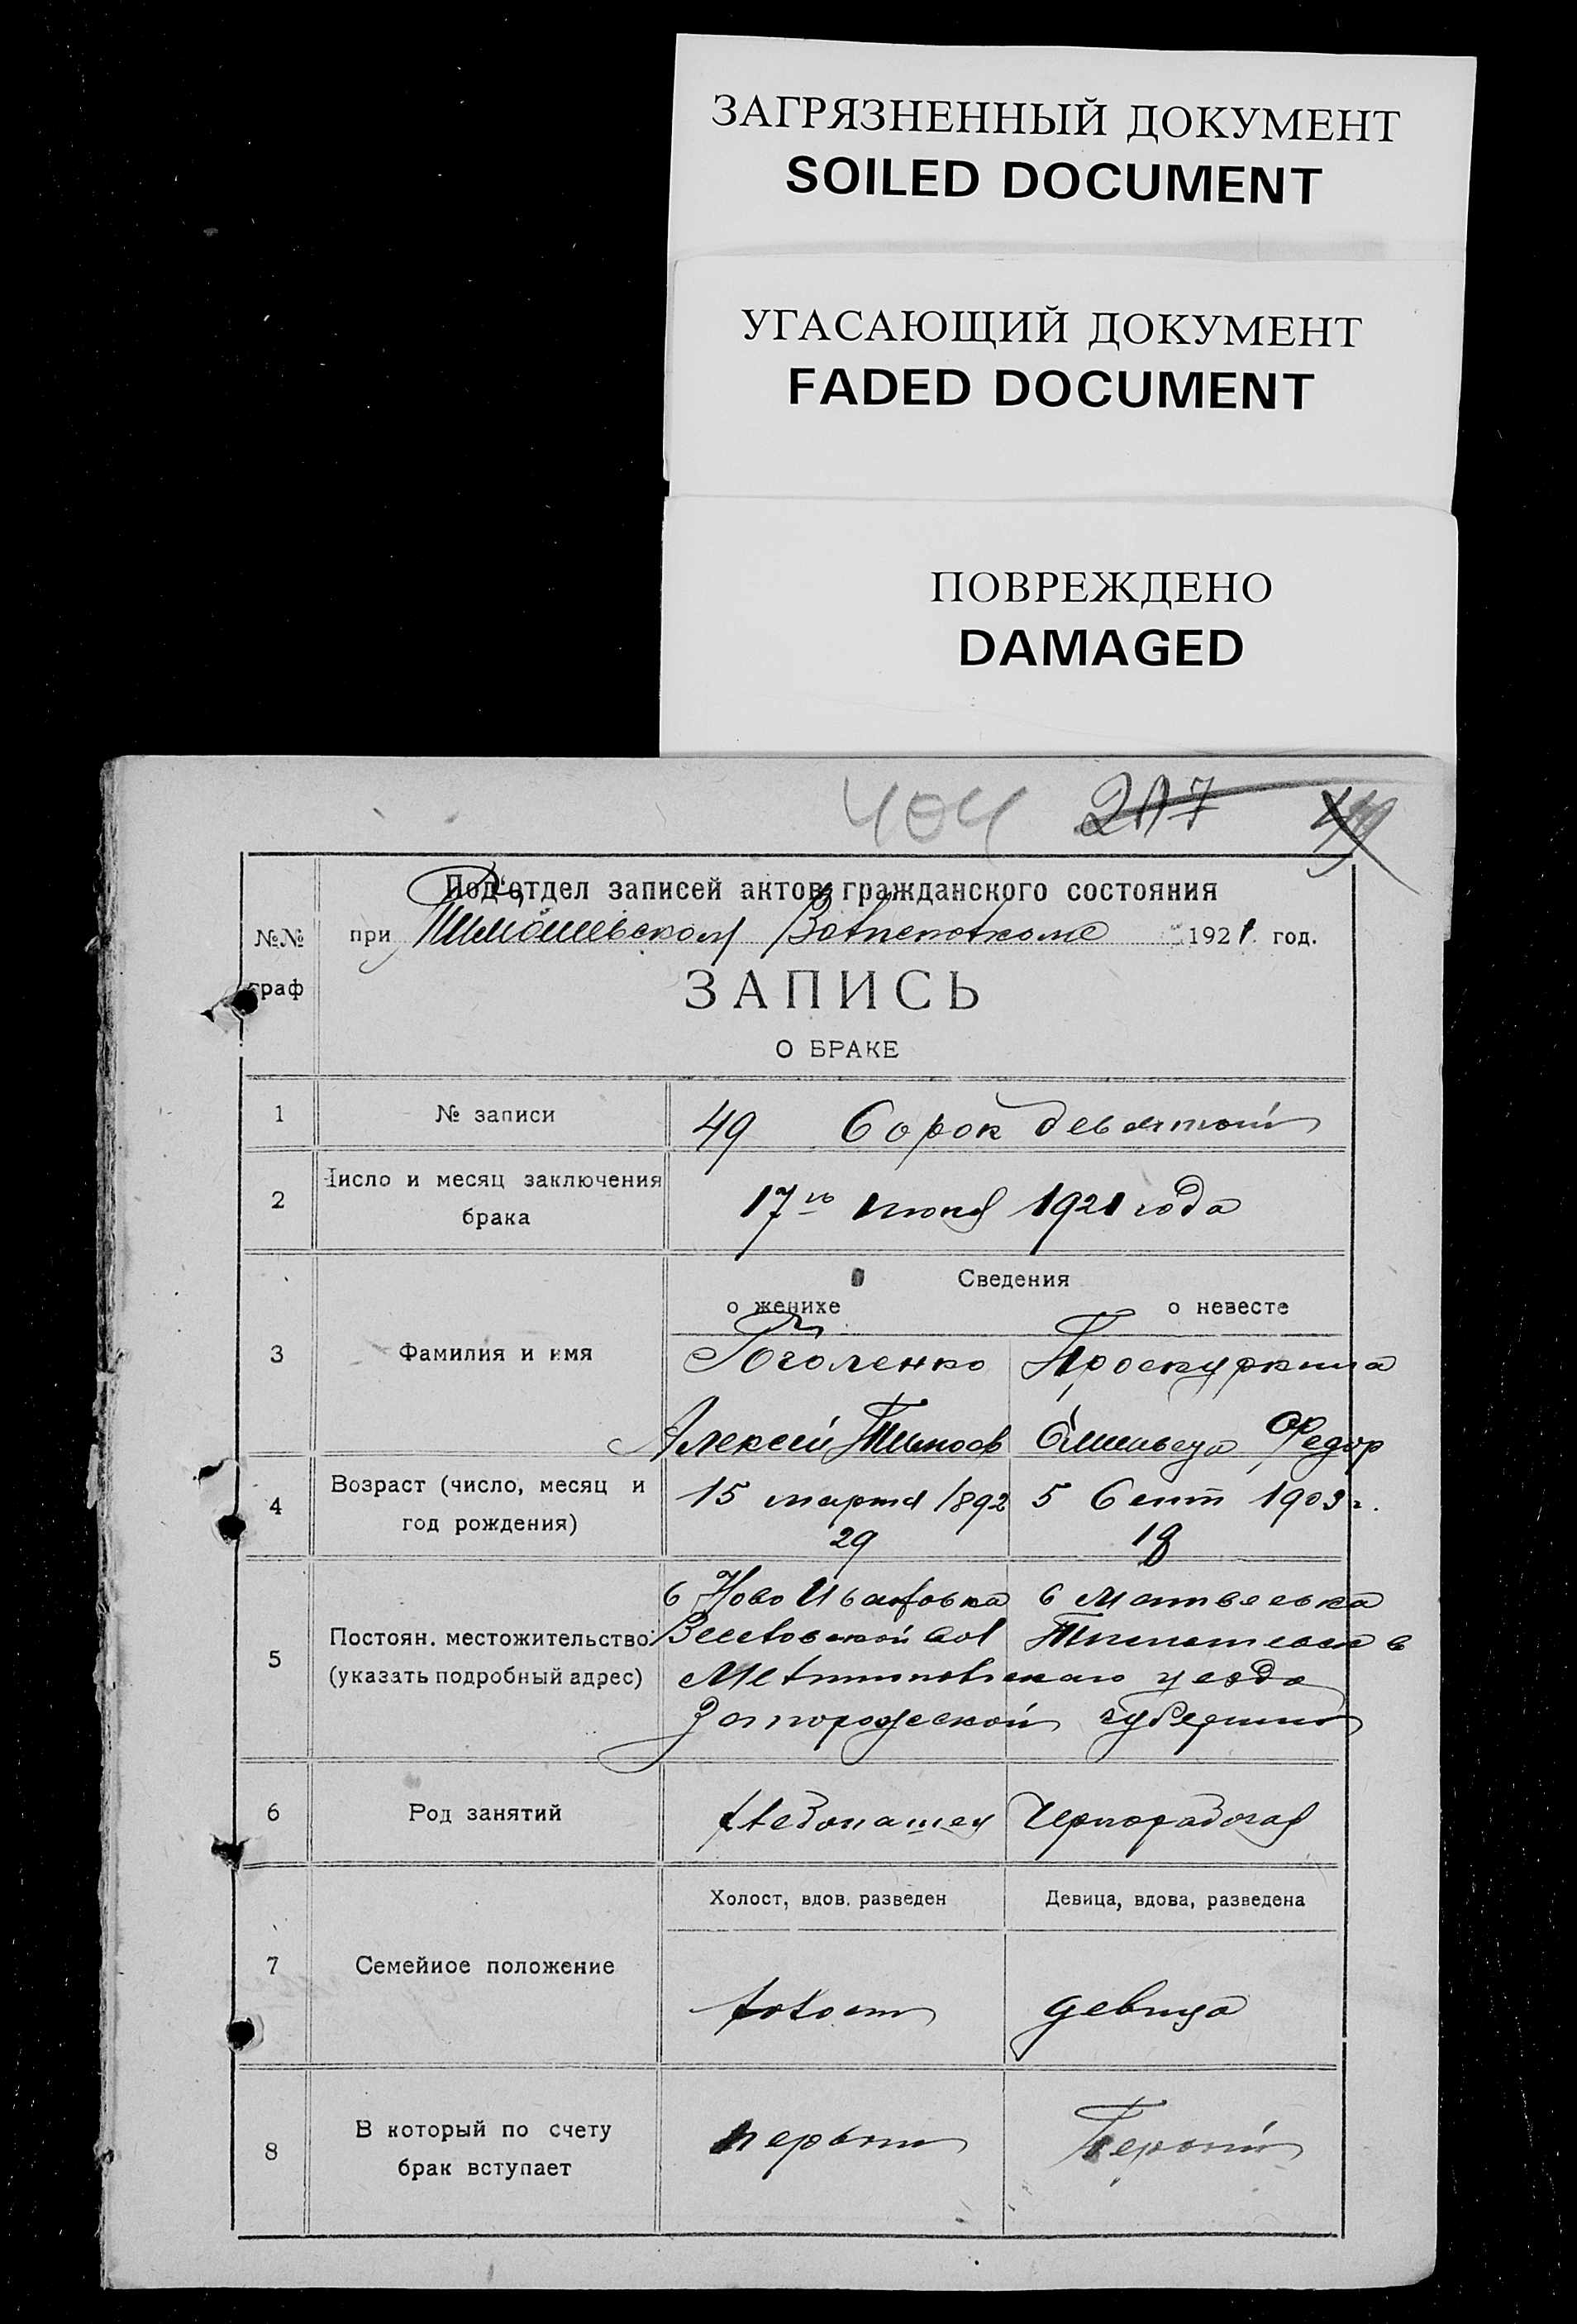 ЗАГРЯЗНЕННЫЙ ДОКУМЕНТ
SOILED DOCUMENT
УГАСАЮЩИЙ ДОКУМЕНТ
FADED DOCUMENT
ПОВРЕЖДЕНО
DAMAGED
404 217
Под'отдел записей актов гражданского состояния
№№ граф
при Тимошевском Волисполкоме 1921 год.
ЗАПИСЬ
О БРАКЕ
1 № записи 49 Сорок девятый
2 Число и месяц заключения брака
17го июня 1921 года
Сведения
о женихе о невесте
3 Фамилия и имя Гоголенко Проскуркина
Алексей Тимоф Федор
4 Возраст (число, месяц и год рождения)
15 марта 1892 5 Сент 1903 г.
29 18
5 Постоян. местожительство (указать подробный адрес)
с Ново Ивановка с Матвеевка
Веселовской вол
Мелитопольского уезда
Запорожской губернии
6 Род занятий Хлебопашец Чернорабочая
Холост, вдов. разведен Девица, вдова, разведена
7 Семейное положение
холост девица
8 В который по счету брак вступает
первый Первый